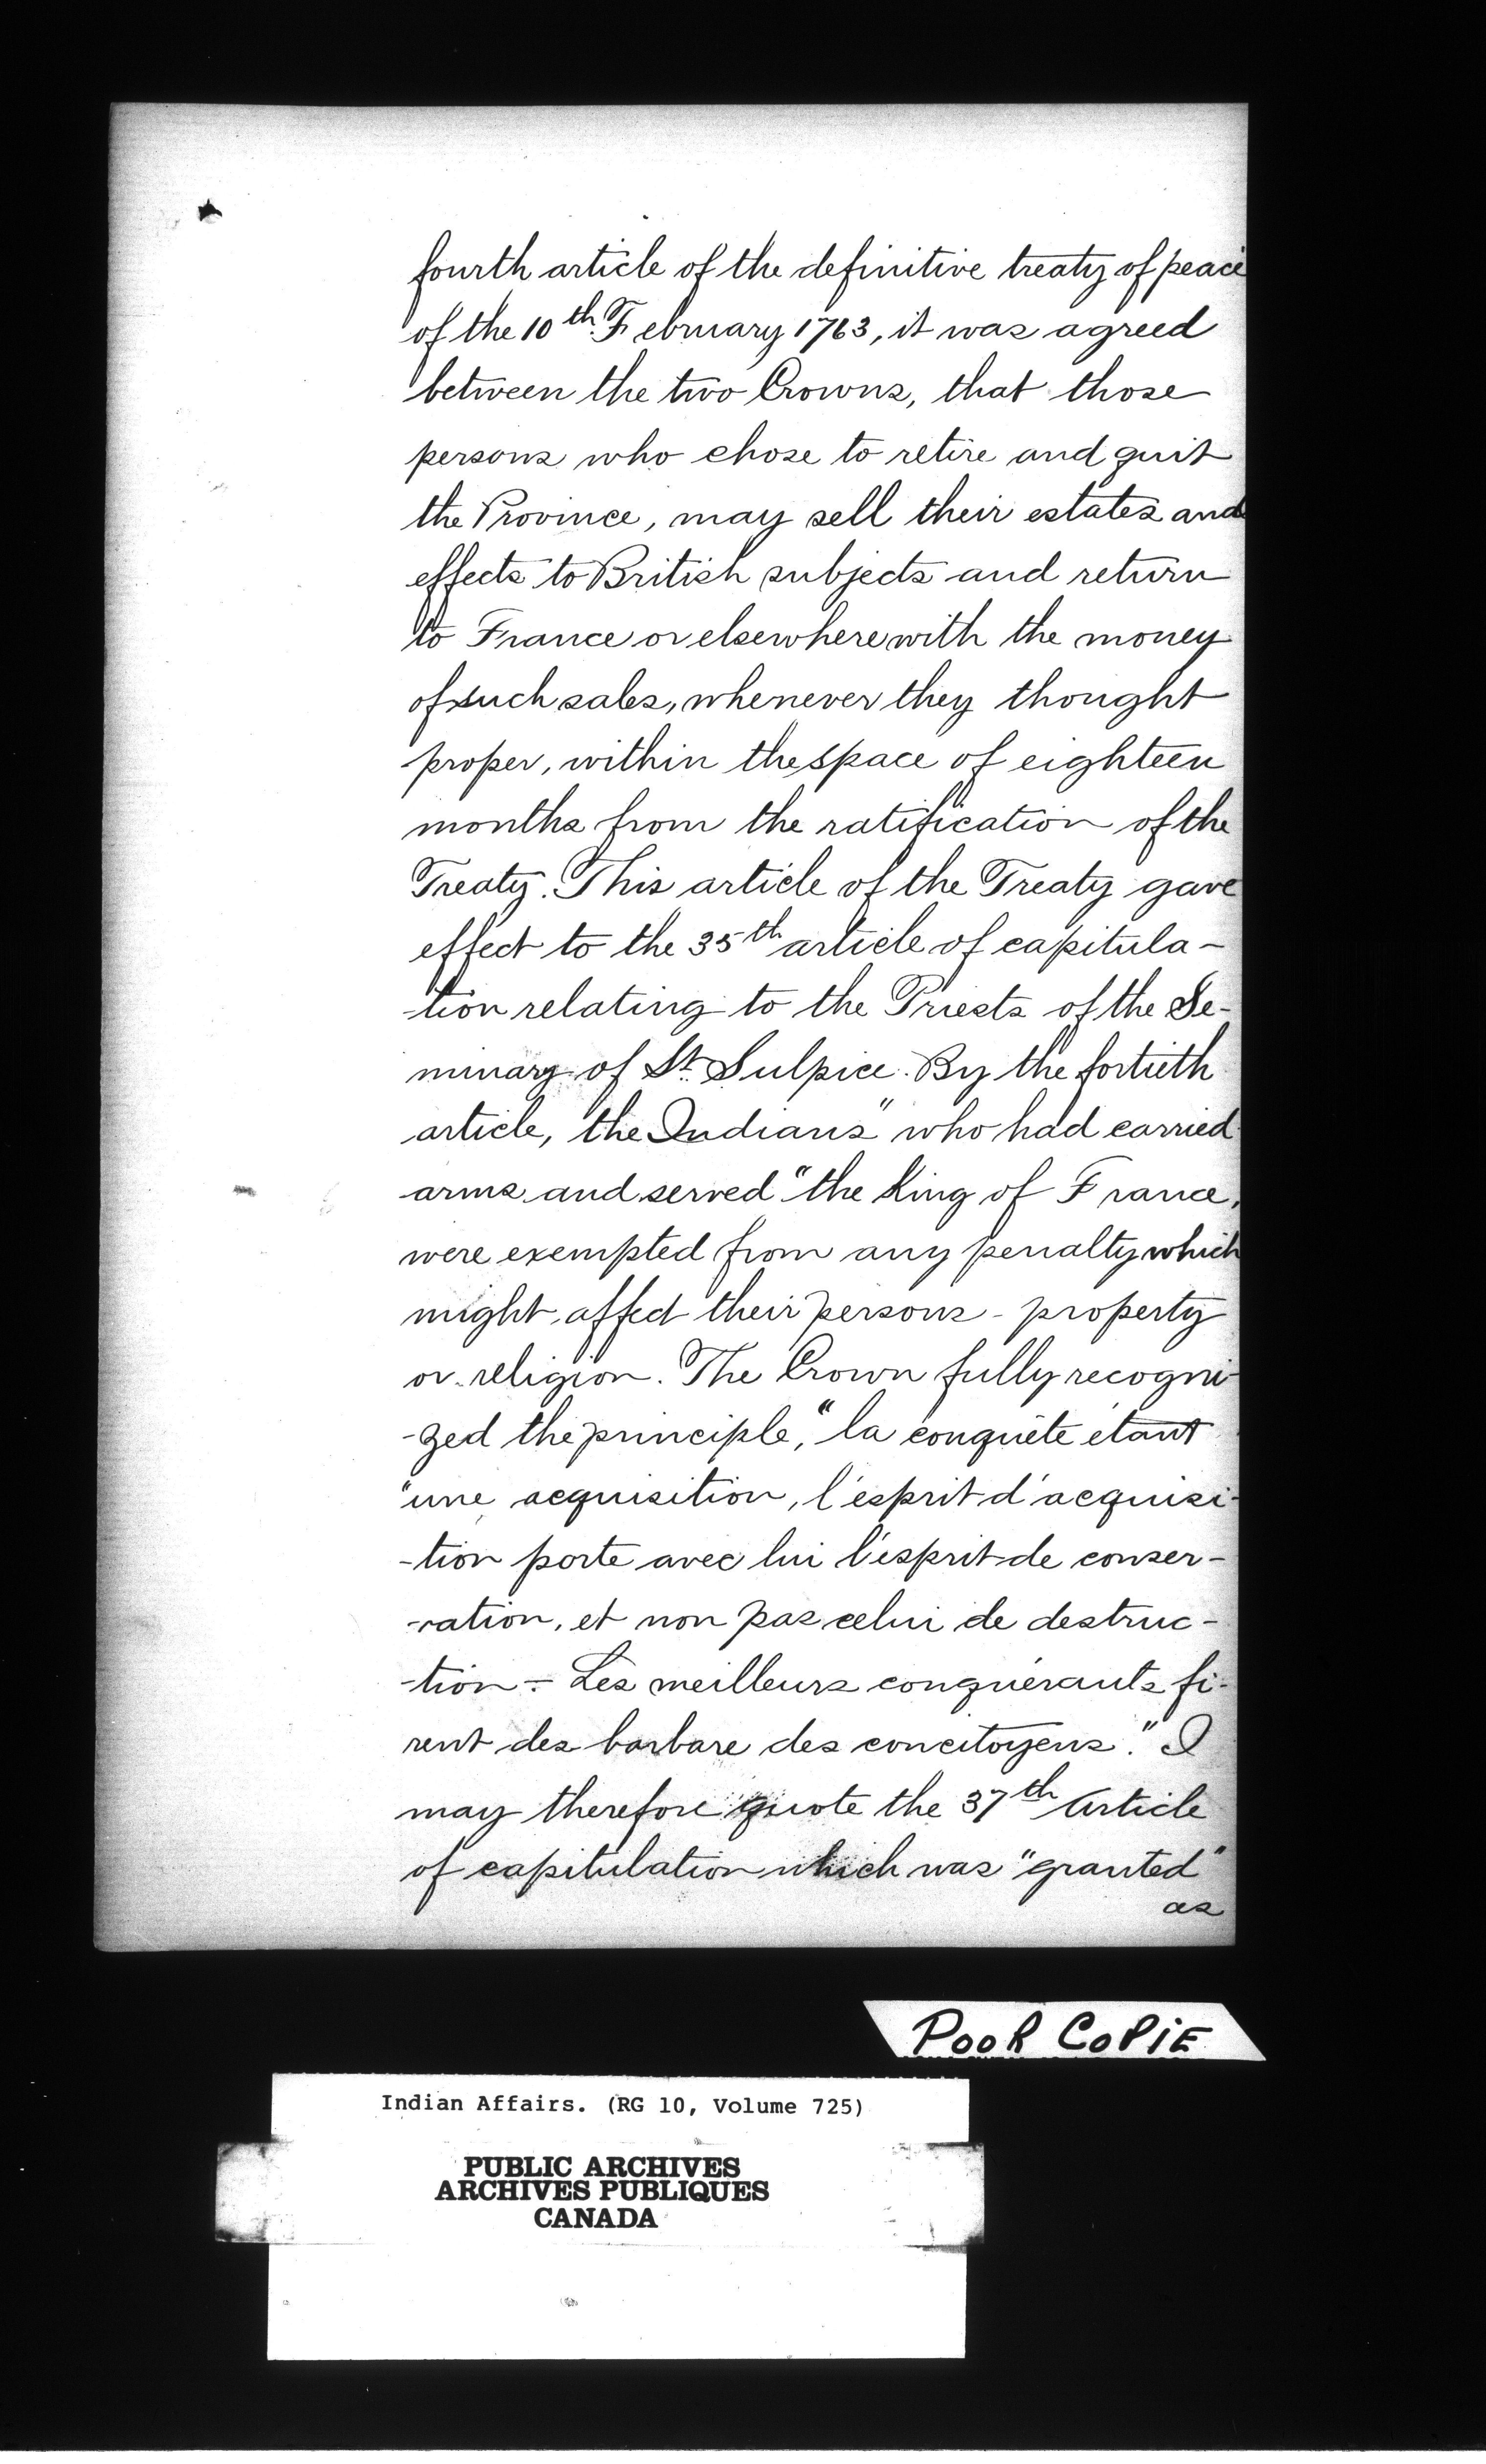 fourth article of the definitive treaty of peace
of the 10th February 1763, it was agreed
between the two Crowns, that those
persons who chose to retire and quit
the Province, may sell their estates and
effects to British subjects and return
to France or elsewhere with the money
of such sales, whenever they thought
proper, within the space of eighteen
months from the ratification of the
Treaty. This article of the Treaty gave
effect to the 35th article of capitula-
-tion relating to the Priests of the Se-
minary of St. Sulpice. By the fortieth
article, the Indians "who had carried
arms and served" the King of France,
were exempted from any penalty which
might affect their persons - property
or religion. The Crown fully recogni-
-zed the principle, "la conquête étant
"une acquisition, l'esprit d'acquisi-
-tion porte avec lui l'esprit de conser-
-vation, et non pas celui de destruc-
-tion - Les meilleurs conquérants fi-
rent des barbare des concitoyens." I
may therefore quote the 37th Article
of capitulation which was "granted"
as
POOR COPIE
Indian Affairs. (RG 10, Volume 725)
PUBLIC ARCHIVES
ARCHIVES PUBLIQUES
CANADA